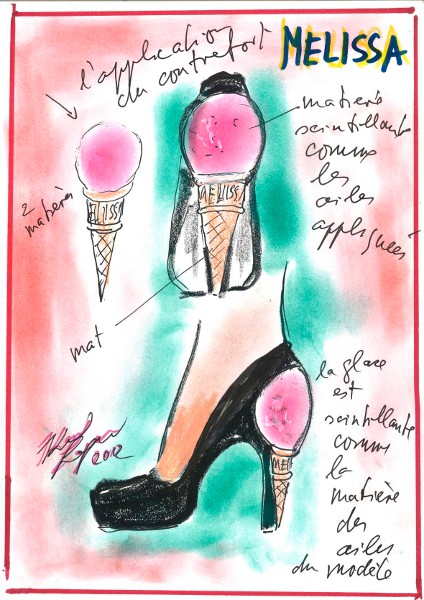 l'application
du contrefort
MELISSA
matière
scintillante
comme
les
ailes
appliquées
2
matières
MELISSA
MELISSA
mat
la glace
est
scintillante
comme
la
matière
des
ailes
du modèle
Karl
2012
MEL